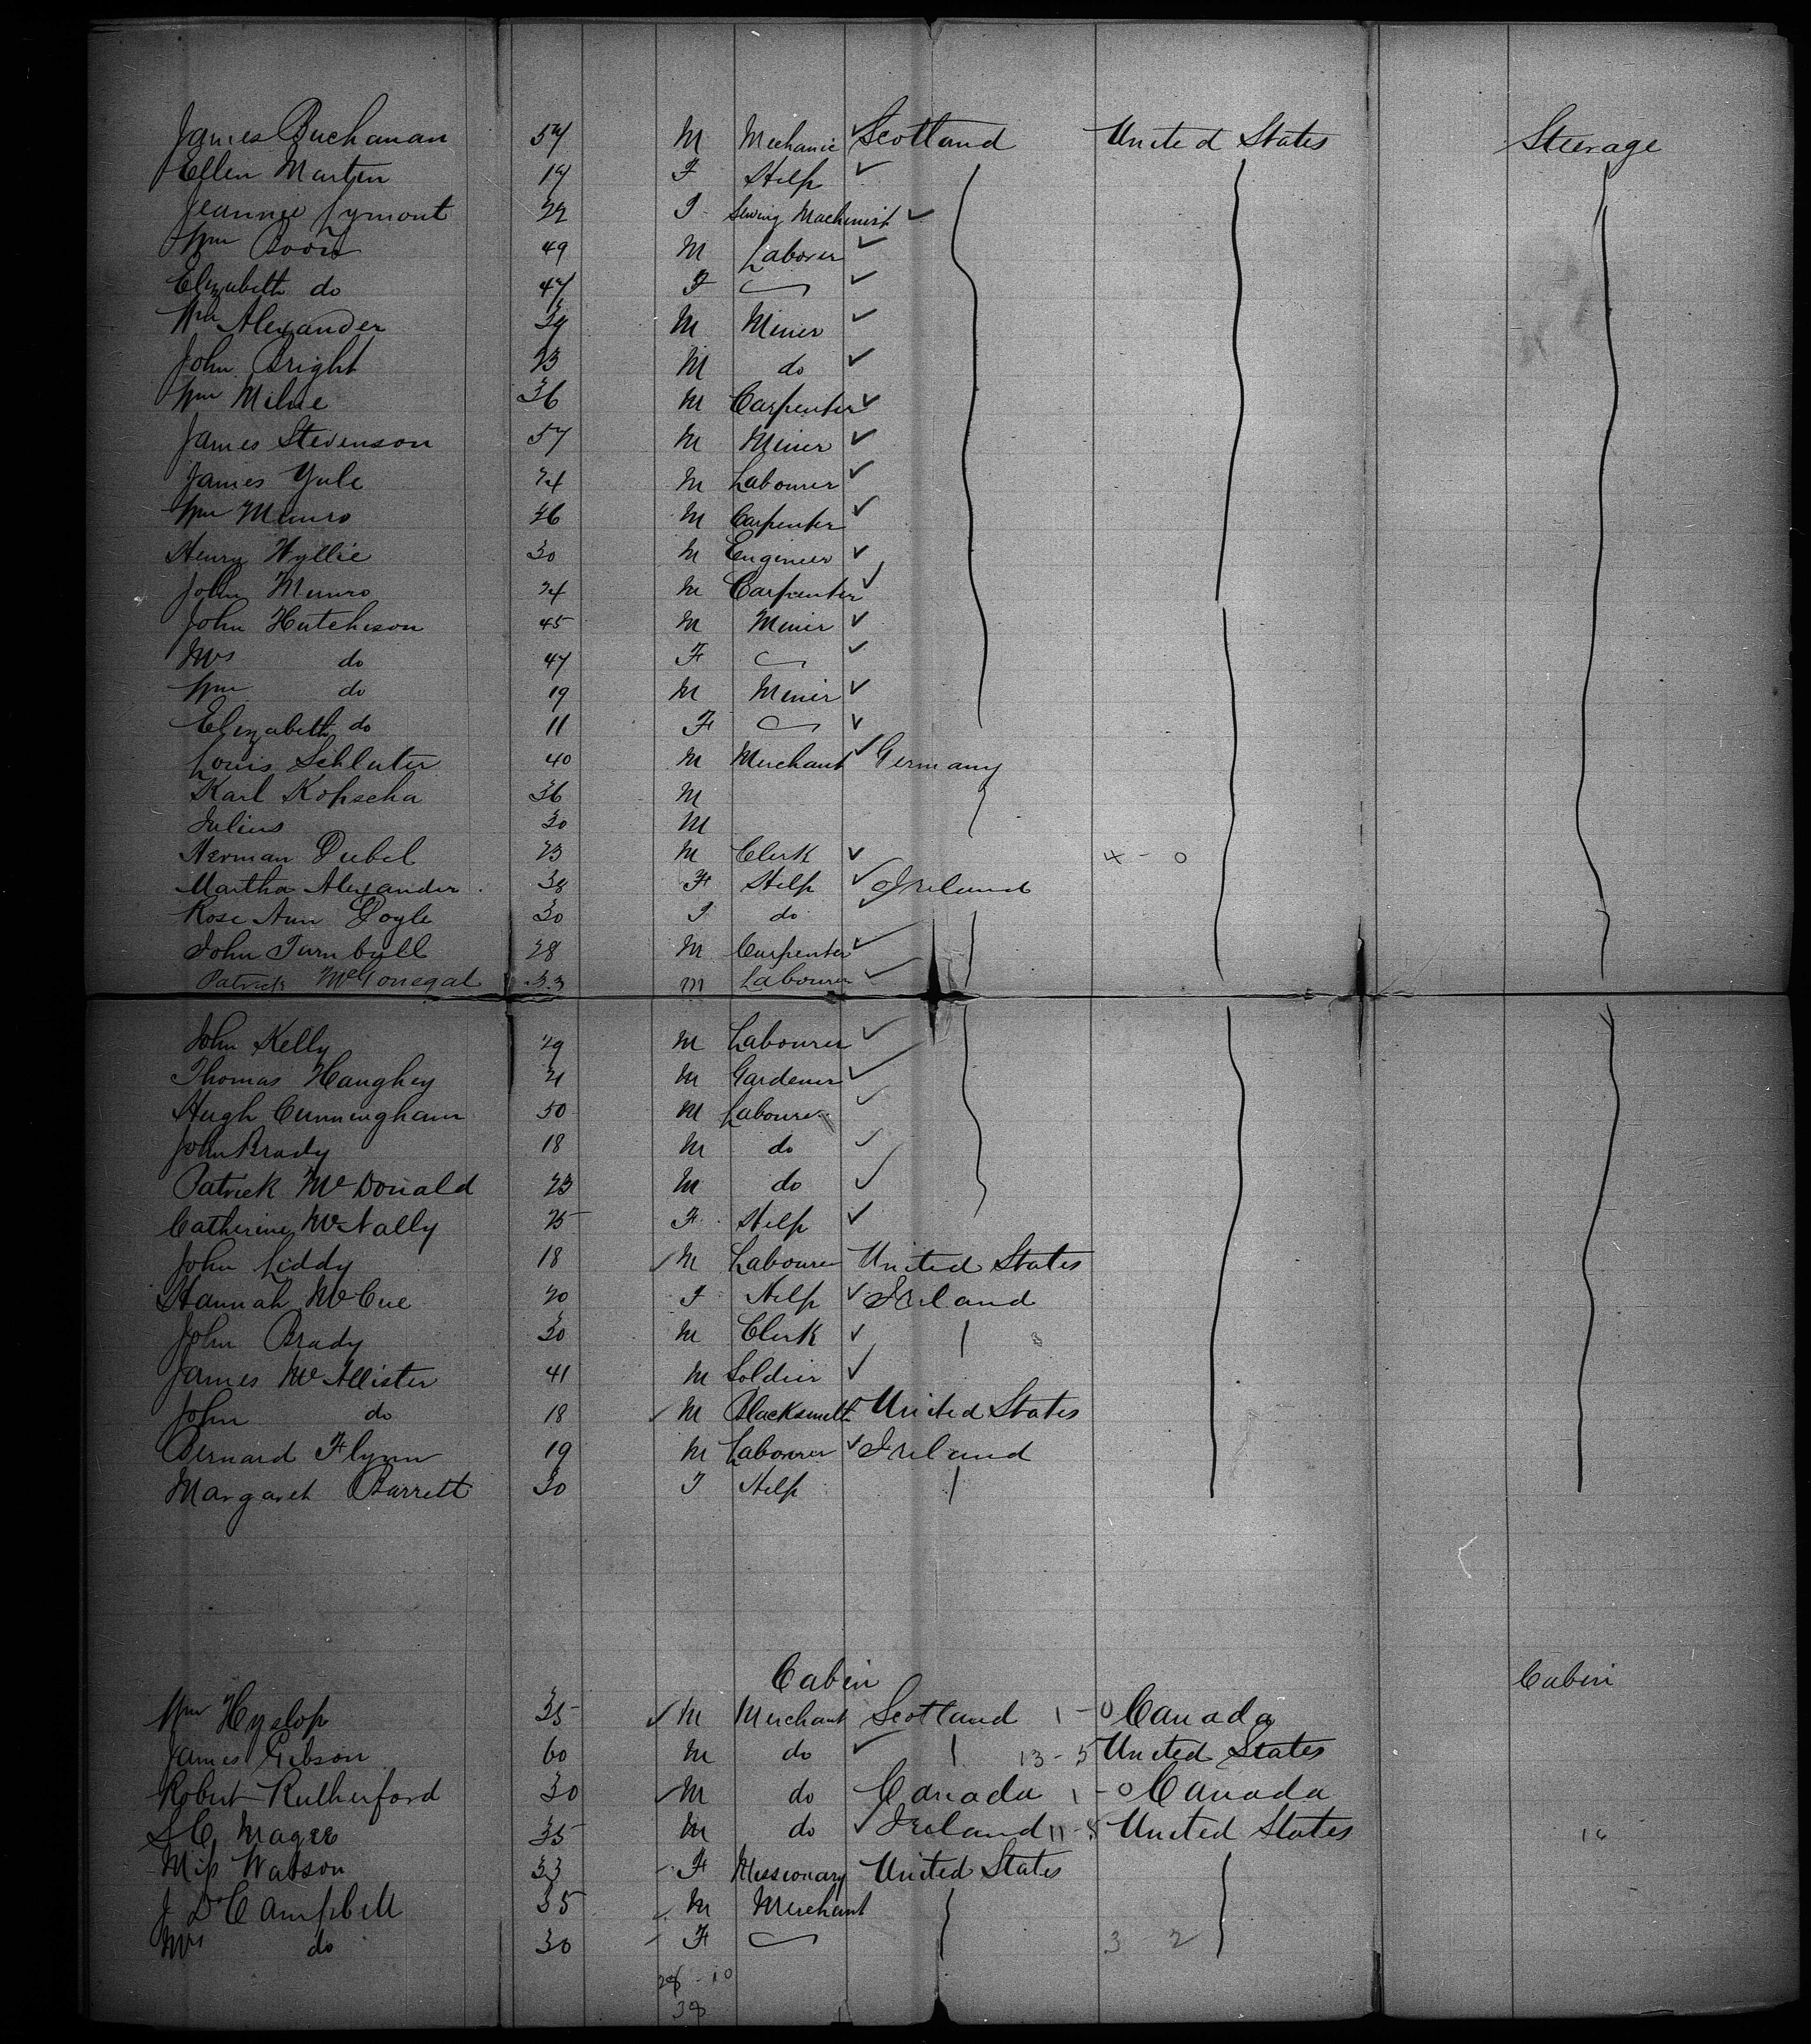 James Buchanan 54 M Mechanic Scotland United States Steerage
Ellen Marten 19 F Help
Jeannie Lymont 22 F Sewing Machinist
Wm 49 M Laborer
Elizabeth do 47 F
Wm Alexander 39 M Miner
John Bright 23 M do
Wm Milne 36 M Carpenter
James Stevenson 57 M Miner
James Yule 24 M Labourer
Wm Munro 26 M Carpenter
Henry Wyllie 30 M Engineer
John Munro 24 M Carpenter
John Hutcheson 45 M Miner
Mrs do 47 F
Wm do 19 M Miner
Elizabeth do 11 F
Louis Schluter 40 M Merchant Germany
Karl Kopscha 36 M
Julius 30 M
Herman Dubel 23 M Clerk 4 - 0
Martha Alexander 38 F Help Ireland
Rose Ann Doyle 30 F do
John Turnbull 28 M Carpenter
Patrick McGonegal 33 M Labourer
John Kelly 29 M Labourer
Thomas Haughey 21 M Gardener
Hugh Cunningham 50 M Labourer
John Brady 18 M do
Patrick McDonald 23 M do
Catherine McNally 25 F Help
John Liddy 18 M Labourer United States
Hannah McCue 20 F Help Ireland
John Brady 30 M Clerk
James McAllister 41 M Soldier
John do 18 M Blacksmith United States
Bernard Flynn 19 M Labourer Ireland
Margaret Barrett 30 F Help
Cabin Cabin
Wm Hyslop 35 M Merchant Scotland 1 - 0 Canada
James Gibson 60 M do 13 - 5 United States
Robert Rutherford 30 M do Canada 1 - 0 Canada
S C Magee 35 M do Ireland 11 - 8 United States 16
Miss Watson 33 F Missionary United States
J D Campbell 35 M Merchant
Mrs do 30 F 3 2
28 - 10
38